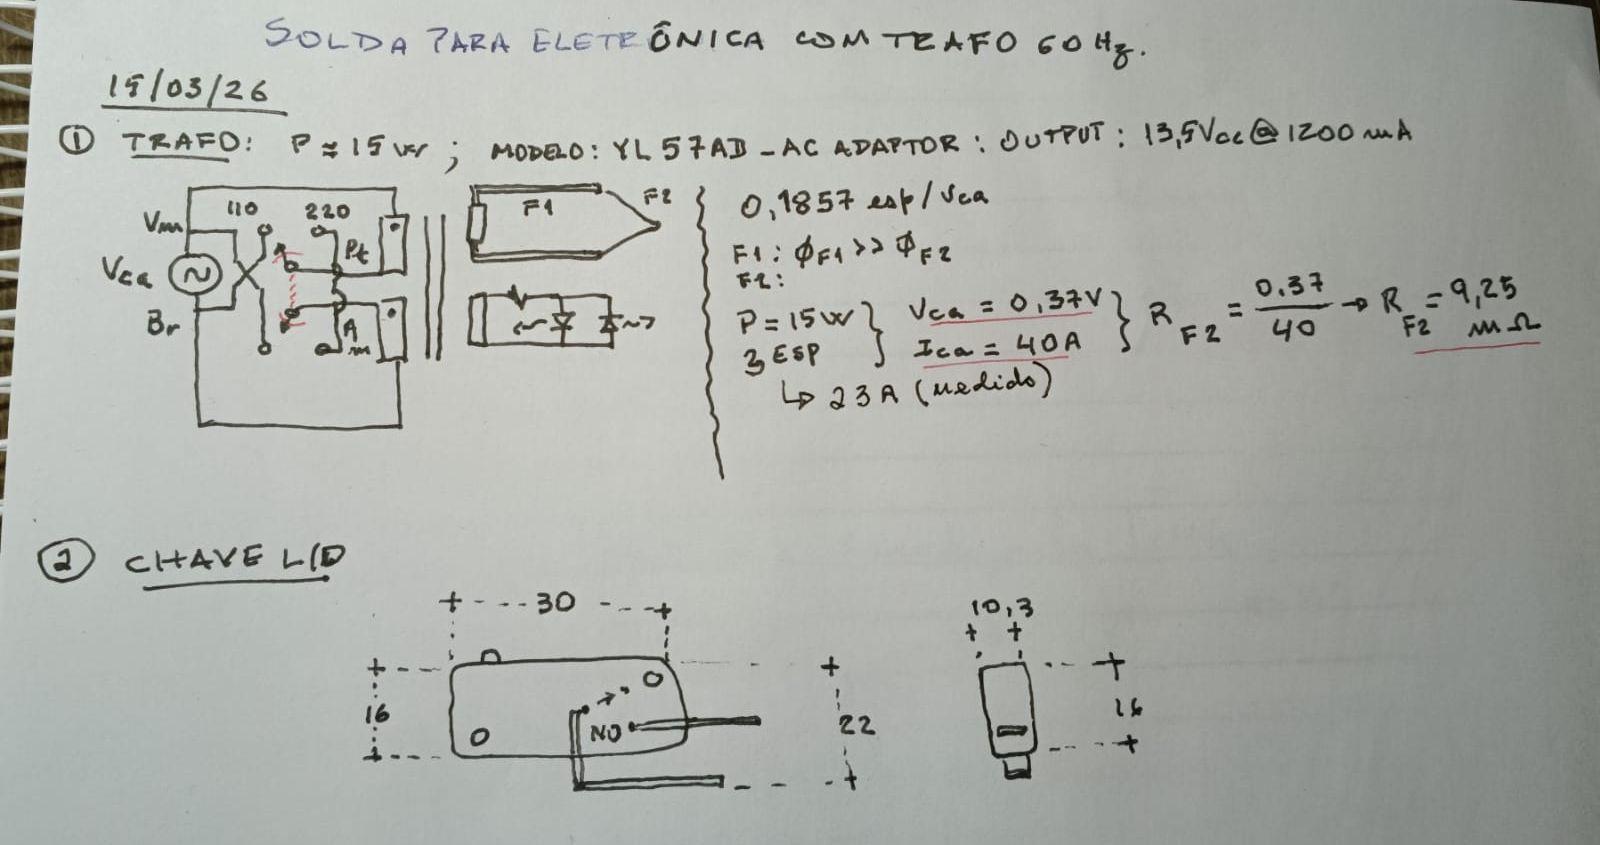 SOLDA PARA ELETRÔNICA COM TRAFO 60 Hz.
15/03/26
① TRAFO: P ≈ 15 W ; MODELO: YL57AB - AC ADAPTOR : OUTPUT : 13,5Vcc @ 1200 mA
110 220
Vm
Pt
Vca
Br
A
m
F1 F2
0,1857 esp/Vca
F1: ϕF1 >> ϕF2
F2:
P = 15W } Vca = 0,37V } R F2 = 0.37 / 40 → R F2 = 9,25 mΩ
3 ESP } Ica = 40A
↳ 23 A (medido)
② CHAVE L/D
30
16
NO
22
10,3
16